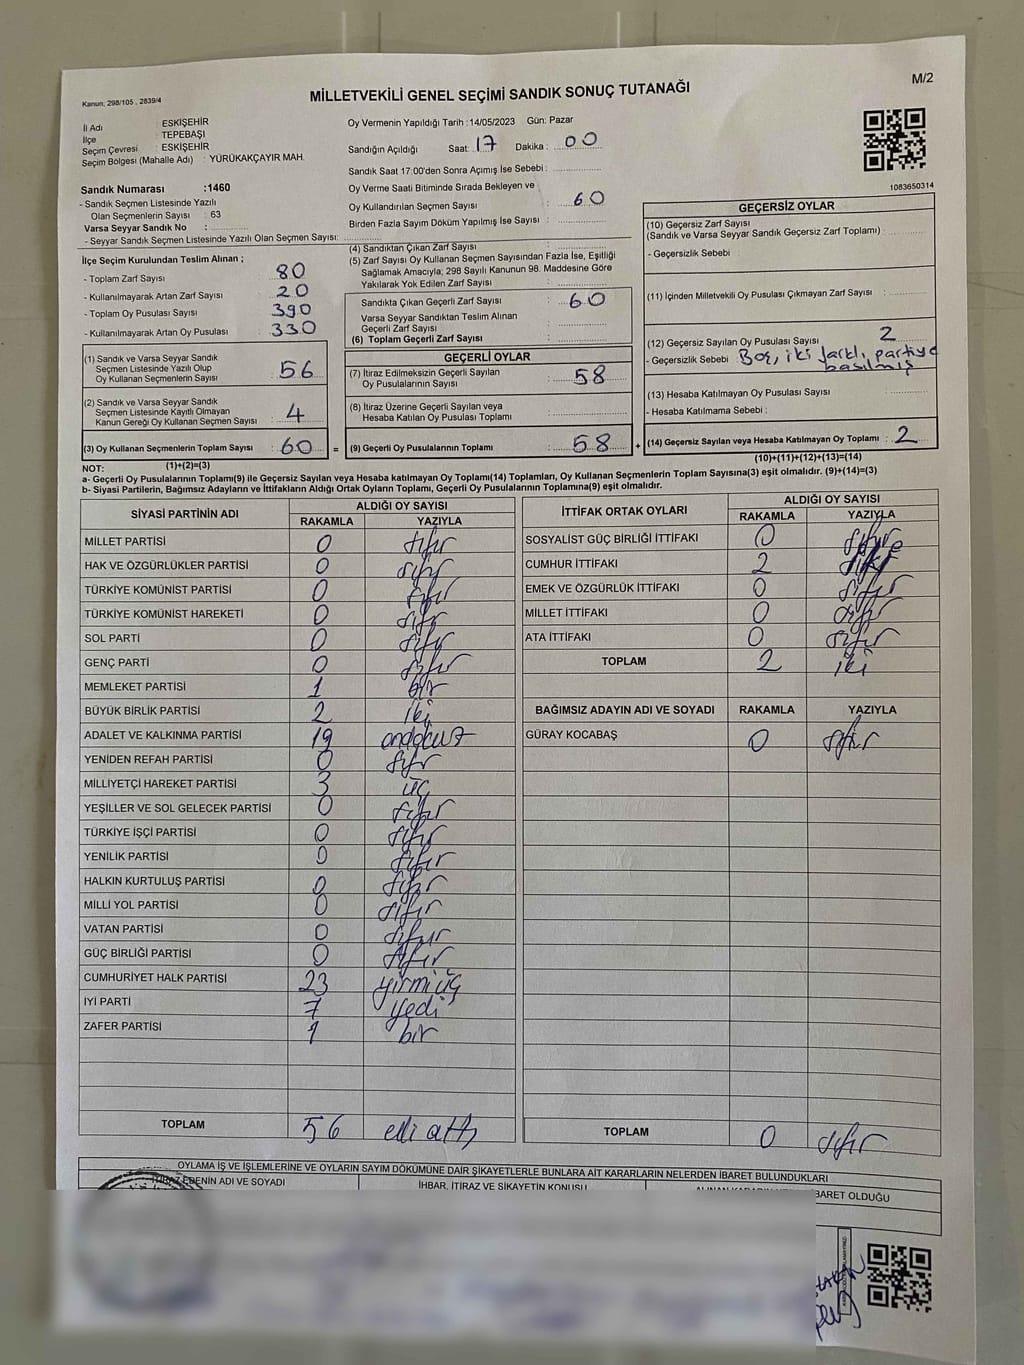 Kanun, 298/105 , 2839/4
MİLLETVEKİLİ GENEL SEÇİMİ SANDIK SONUÇ TUTANAĞI
M/2
İl Adı : ESKİŞEHİR
İlçe : TEPEBAŞI
Seçim Çevresi : ESKİŞEHİR
Seçim Bölgesi (Mahalle Adı) : YÜRÜKAKÇAYIR MAH.
Sandık Numarası :1460
- Sandık Seçmen Listesinde Yazılı
Olan Seçmenlerin Sayısı : 63
Varsa Seyyar Sandık No :
- Seyyar Sandık Seçmen Listesinde Yazılı Olan Seçmen Sayısı:
İlçe Seçim Kurulundan Teslim Alınan ;
- Toplam Zarf Sayısı : 80
- Kullanılmayarak Artan Zarf Sayısı : 20
- Toplam Oy Pusulası Sayısı : 390
- Kullanılmayarak Artan Oy Pusulası : 330
(1) Sandık ve Varsa Seyyar Sandık
Seçmen Listesinde Yazılı Olup
Oy Kullanan Seçmenlerin Sayısı : 56
(2) Sandık ve Varsa Seyyar Sandık
Seçmen Listesinde Kayıtlı Olmayan
Kanun Gereği Oy Kullanan Seçmen Sayısı : 4
(3) Oy Kullanan Seçmenlerin Toplam Sayısı : 60 =
(1)+(2)=(3)
Oy Vermenin Yapıldığı Tarih :14/05/2023 Gün: Pazar
Sandığın Açıldığı Saat: 17 Dakika : 00
Sandık Saat 17:00'den Sonra Açımış İse Sebebi :
Oy Verme Saati Bitiminde Sırada Bekleyen ve
Oy Kullandırılan Seçmen Sayısı : 60
Birden Fazla Sayım Döküm Yapılmış İse Sayısı :
(4) Sandıktan Çıkan Zarf Sayısı :
(5) Zarf Sayısı Oy Kullanan Seçmen Sayısından Fazla İse, Eşitliği
Sağlamak Amacıyla; 298 Sayılı Kanunun 98. Maddesine Göre
Yakılarak Yok Edilen Zarf Sayısı :
Sandıkta Çıkan Geçerli Zarf Sayısı : 60
Varsa Seyyar Sandıktan Teslim Alınan
Geçerli Zarf Sayısı :
(6) Toplam Geçerli Zarf Sayısı :
GEÇERLİ OYLAR
(7) İtiraz Edilmeksizin Geçerli Sayılan
Oy Pusulalarının Sayısı : 58
(8) İtiraz Üzerine Geçerli Sayılan veya
Hesaba Katılan Oy Pusulası Toplamı :
(9) Geçerli Oy Pusulalarının Toplamı : 58 +
1083650314
GEÇERSİZ OYLAR
(10) Geçersiz Zarf Sayısı
(Sandık ve Varsa Seyyar Sandık Geçersiz Zarf Toplamı) :
- Geçersizlik Sebebi :
(11) İçinden Milletvekili Oy Pusulası Çıkmayan Zarf Sayısı :
(12) Geçersiz Sayılan Oy Pusulası Sayısı : 2
- Geçersizlik Sebebi : Boş, iki farklı partiye
basılmış
(13) Hesaba Katılmayan Oy Pusulası Sayısı :
- Hesaba Katılmama Sebebi :
(14) Geçersiz Sayılan veya Hesaba Katılmayan Oy Toplamı : 2
(10)+(11)+(12)+(13)=(14)
NOT:
a- Geçerli Oy Pusulalarının Toplamı(9) ile Geçersiz Sayılan veya Hesaba katılmayan Oy Toplamı(14) Toplamları, Oy Kullanan Seçmenlerin Toplam Sayısına(3) eşit olmalıdır. (9)+(14)=(3)
b- Siyasi Partilerin, Bağımsız Adayların ve İttifakların Aldığı Ortak Oyların Toplamı, Geçerli Oy Pusulalarının Toplamına(9) eşit olmalıdır.
SİYASİ PARTİNİN ADI ALDIĞI OY SAYISI
RAKAMLA YAZIYLA
MİLLET PARTİSİ 0 sıfır
HAK VE ÖZGÜRLÜKLER PARTİSİ 0 sıfır
TÜRKİYE KOMÜNİST PARTİSİ 0 sıfır
TÜRKİYE KOMÜNİST HAREKETİ 0 sıfır
SOL PARTİ 0 sıfır
GENÇ PARTİ 0 sıfır
MEMLEKET PARTİSİ 1 bir
BÜYÜK BİRLİK PARTİSİ 2 iki
ADALET VE KALKINMA PARTİSİ 19 ondokuz
YENİDEN REFAH PARTİSİ 0 sıfır
MİLLİYETÇİ HAREKET PARTİSİ 3 üç
YEŞİLLER VE SOL GELECEK PARTİSİ 0 sıfır
TÜRKİYE İŞÇİ PARTİSİ 0 sıfır
YENİLİK PARTİSİ 0 sıfır
HALKIN KURTULUŞ PARTİSİ 0 sıfır
MİLLİ YOL PARTİSİ 0 sıfır
VATAN PARTİSİ 0 sıfır
GÜÇ BİRLİĞİ PARTİSİ 0 sıfır
CUMHURİYET HALK PARTİSİ 23 yirmiüç
İYİ PARTİ 7 yedi
ZAFER PARTİSİ 1 bir
TOPLAM 56 elli altı
İTTİFAK ORTAK OYLARI ALDIĞI OY SAYISI
RAKAMLA YAZIYLA
SOSYALİST GÜÇ BİRLİĞİ İTTİFAKI 0 sıfır
CUMHUR İTTİFAKI 2
EMEK VE ÖZGÜRLÜK İTTİFAKI 0 sıfır
MİLLET İTTİFAKI 0 sıfır
ATA İTTİFAKI 0 sıfır
TOPLAM 2 iki
BAĞIMSIZ ADAYIN ADI VE SOYADI RAKAMLA YAZIYLA
GÜRAY KOCABAŞ 0 sıfır
TOPLAM 0 sıfır
OYLAMA İŞ VE İŞLEMLERİNE VE OYLARIN SAYIM DÖKÜMÜNE DAİR ŞİKAYETLERLE BUNLARA AİT KARARLARIN NELERDEN İBARET BULUNDUKLARI
İTİRAZ EDENİN ADI VE SOYADI
İHBAR, İTİRAZ VE ŞİKAYETİN KONUSU
ALINAN KARARIN NEDEN İBARET OLDUĞU